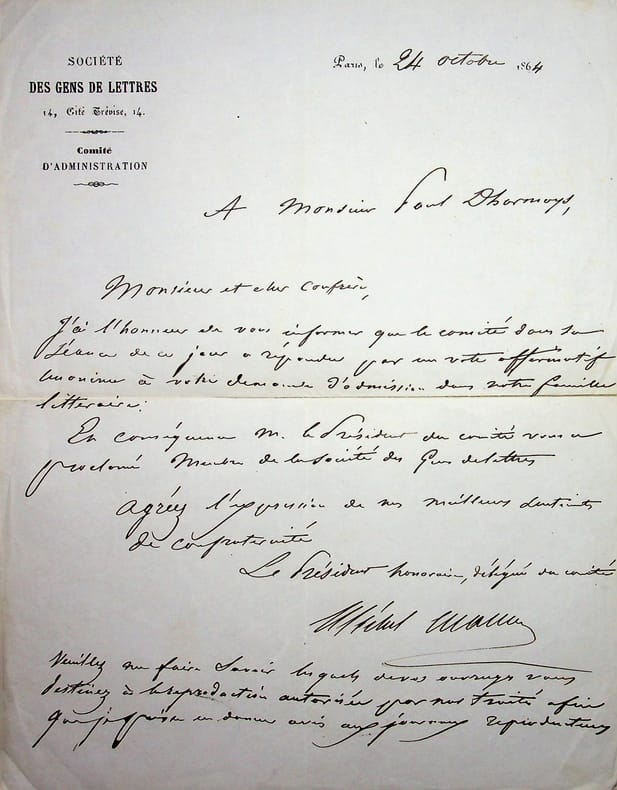 SOCIÉTÉ
DES GENS DE LETTRES
14, Cité Trévise, 14.
Comité
D'ADMINISTRATION
Paris, le 24 octobre 1864
A Monsieur Paul Dhormoys,
Monsieur et cher Confrère,
J'ai l'honneur de vous informer que le comité dans sa
Séance de ce jour a répondu par un vote affirmatif
unanime à votre demande d'admission dans notre famille
litteraire.
En conséquence M. le Président du comité vous a
proclamé Membre de la Société des Gens de lettres
agréez l'expression de nos meilleurs sentiments
de confraternité
Le Président honoraire, délégué du comité
Michel Masson
Veuillez me faire Savoir lesquels de vos ouvrages vous
destinez à la reproduction autorisée par nos traités afin
que je puisse en donner avis aux journaux reproducteurs